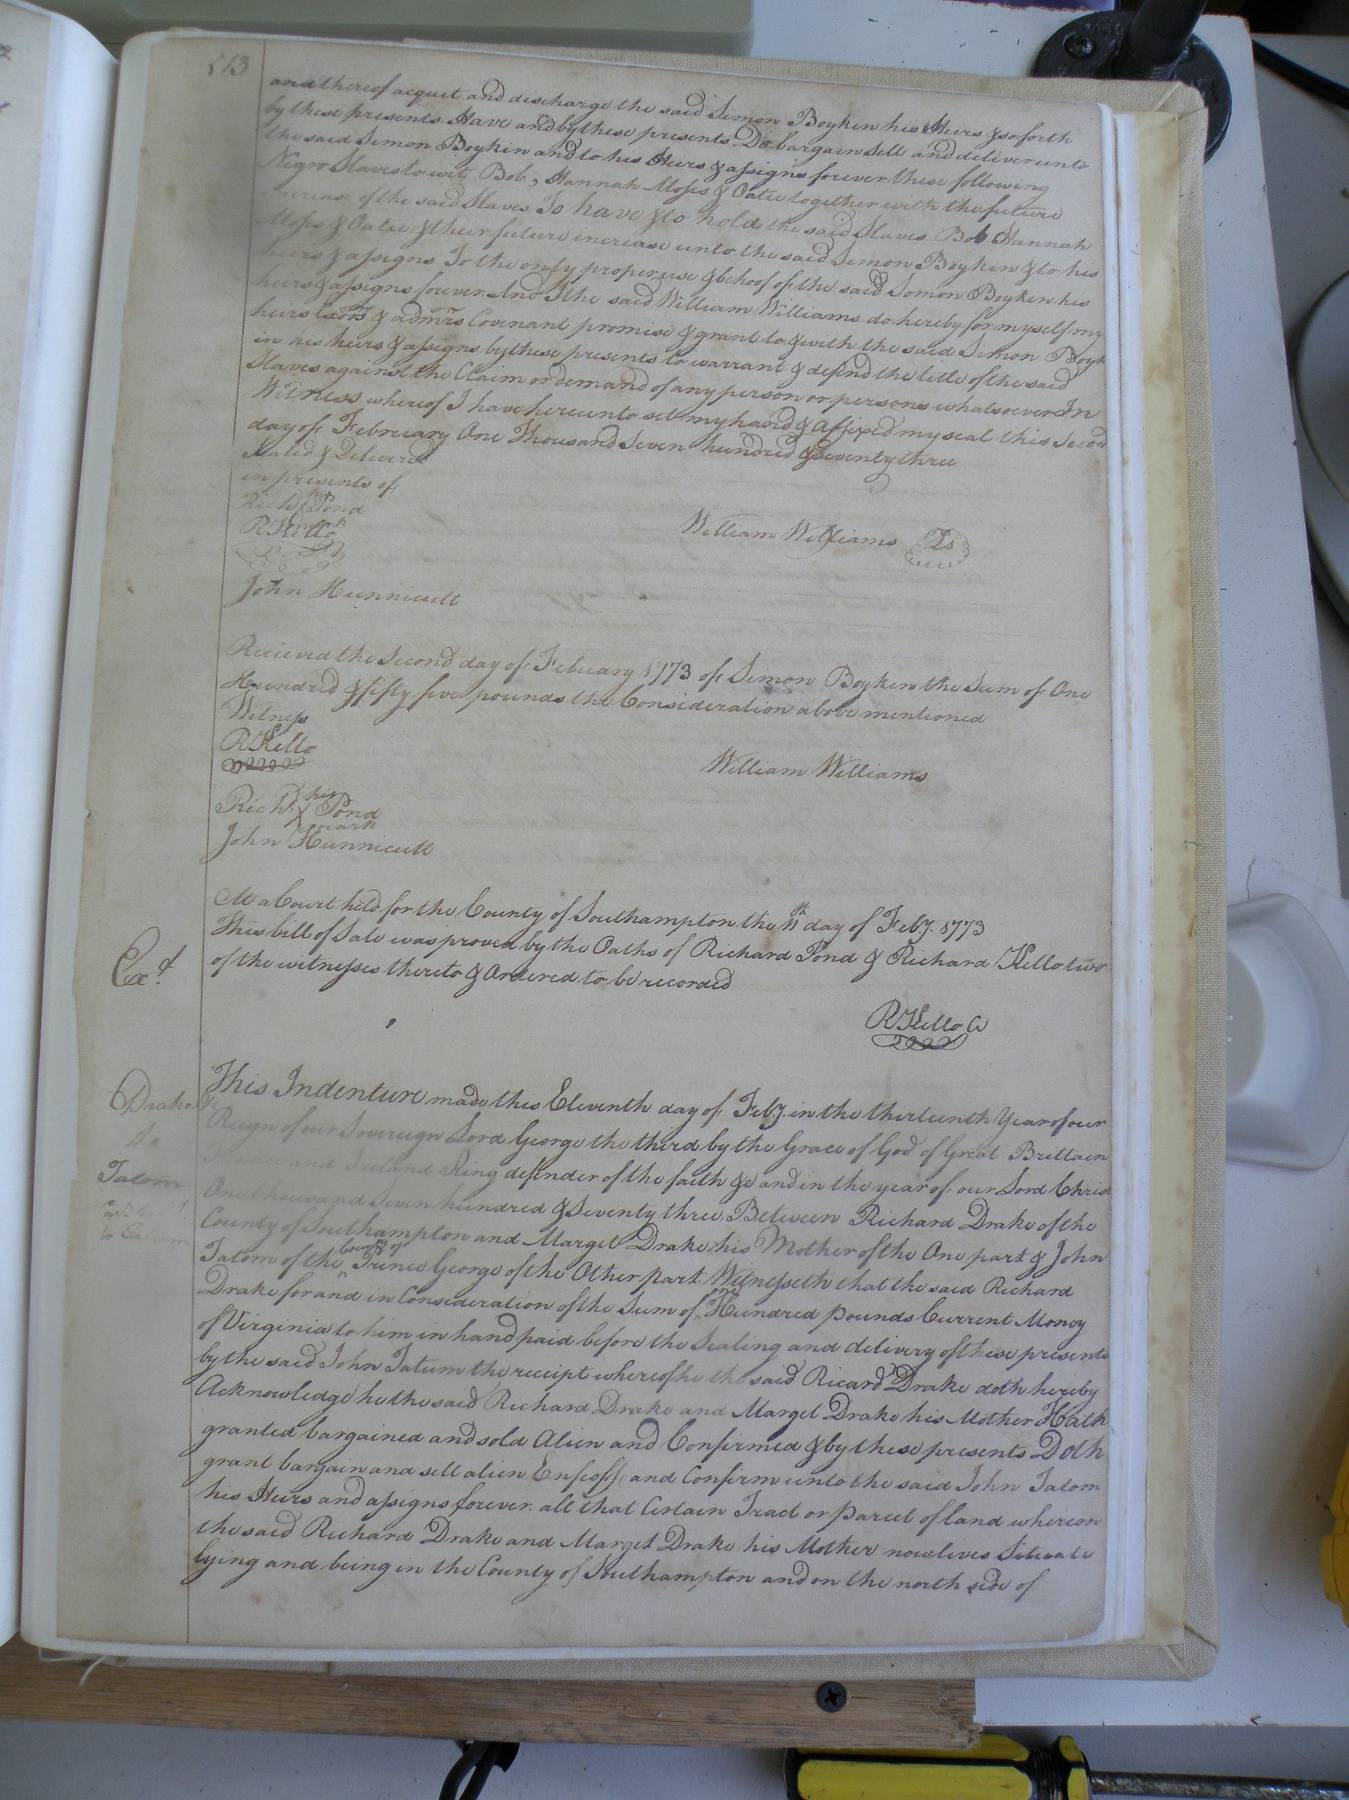 513
and thereof acquit and discharge the said Simon Boykin his Heirs & so forth
by these presents Have and by these presents Do bargain Sell and deliver unto
the said Simon Boykin and to his Heirs & assigns forever these following
Negro Slaves to wit Bob, Hannah Moses & Oatie together with the future
increase of the said Slaves To have & to hold the said Slaves Bob Hannah
Moses & Oatie & their future increase unto the said Simon Boykin & to his
heirs & assigns To the only proper use & behoof of the said Simon Boykin his
heirs & assigns forever And I the said William Williams do hereby for myself my
heirs Exors & admrs Covenant promise & grant to & with the said Simon Boyk
in his heirs & assigns by these presents to warrant & defend the title of the said
Slaves against the Claim or demand of any person or persons whatsoever In
Witness whereof I have hereunto set my hand & affixed my seal this Second
day of February One Thousand Seven hundred & Seventy three
Sealed & Delivered
in presents of
Richd his Pond
mark
RKello
William Williams Ls
John Hunnicutt
Recieved the Second day of Febuary 1773 of Simon Boykin the Sum of One
Hundred & fifty five pounds the Consideration above mentioned
Witness
RKello
William Williams
Richd. his X Pond
mark
John Hunnicutt
At a Court held for the County of Southampton the 11th day of Feby. 1773
This bill of Sale was proved by the Oaths of Richard Pond & Richard Kello two
of the witnesses thereto & Ordered to be recorded
Exd.
RKello C
Drake &
To
Tatom
This Indenture made this Eleventh day of Feby. in the thirteenth Year of our
Reign of our Sovereign Lord George the third by the Grace of God of Great Brittain
France and Ireland King defender of the faith &c and in the year of our Lord Christ
One thousand Seven hundred & Seventy three Between Richard Drake of the
County of Southampton and Marget Drake his Mother of the One part & John
Tatom of the County of Prince George of the Other part Witnesseth that the said Richard
Drake for and in Consideration of the Sum of one Hundred pounds Current Money
of Virginia to him in hand paid before the Sealing and delivery of these presents
by the said John Tatum the receipt whereof he the said Ricard Drake doth hereby
Acknowledge he the said Richard Drake and Marget Drake his Mother Hath
granted bargained and sold Alien and Confirmed & by these presents Doth
grant bargain and sell alien Enfeoff and Confirm unto the said John Tatom
his Heirs and assigns forever all that Certain Tract or parcel of land whereon
the said Richard Drake and Marget Drake his Mother now lives Situate
lying and being in the County of Southampton and on the north side of